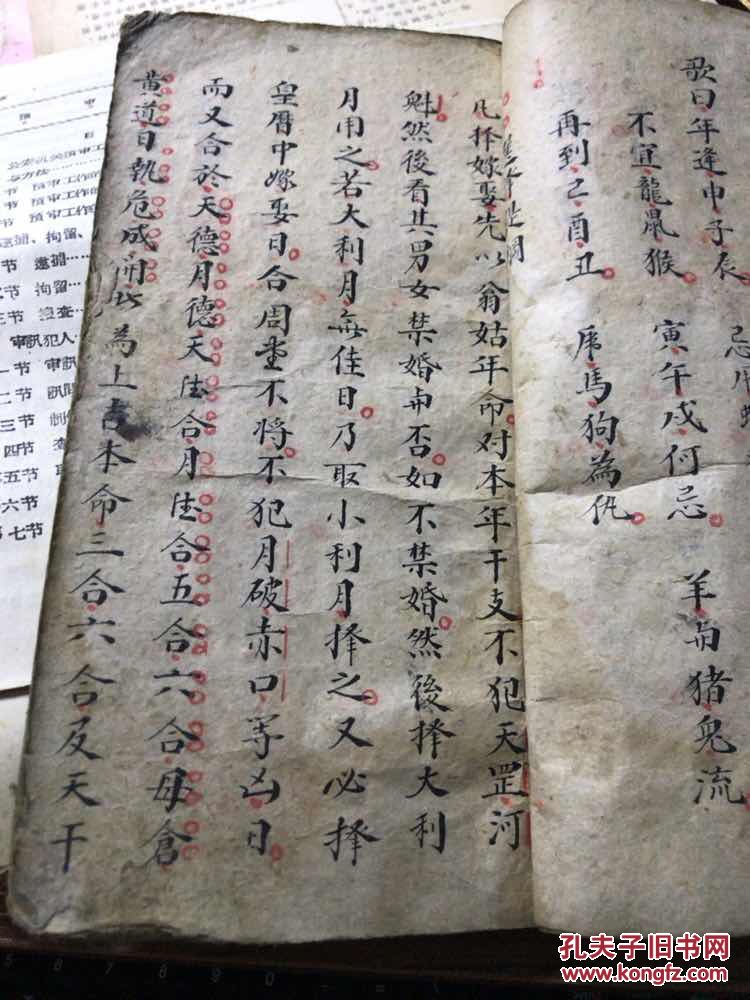 歌曰年逢申子辰
不宜龍鼠猴
再到巳酉丑
寅午戌何忌
虎馬狗為仇
羊與猪兔流
凡择嫁娶先以翁姑年命对本年干支不犯天罡河
魁然後看其男女禁婚與否如不禁婚然後择大利
月用之若大利月無佳日乃取小利月择之又必择
皇曆中嫁娶日合周堂不將不犯月破赤口等凶日
而又合於天德月德天德合月德合五合六合母倉
黄道日執危成開此為上吉本命三合六合及天干
公安机关预审工作
预审工作的
预审工作的
逮捕、拘留
逮捕
拘留
审讯犯人
孔夫子旧书网
kongfz.com